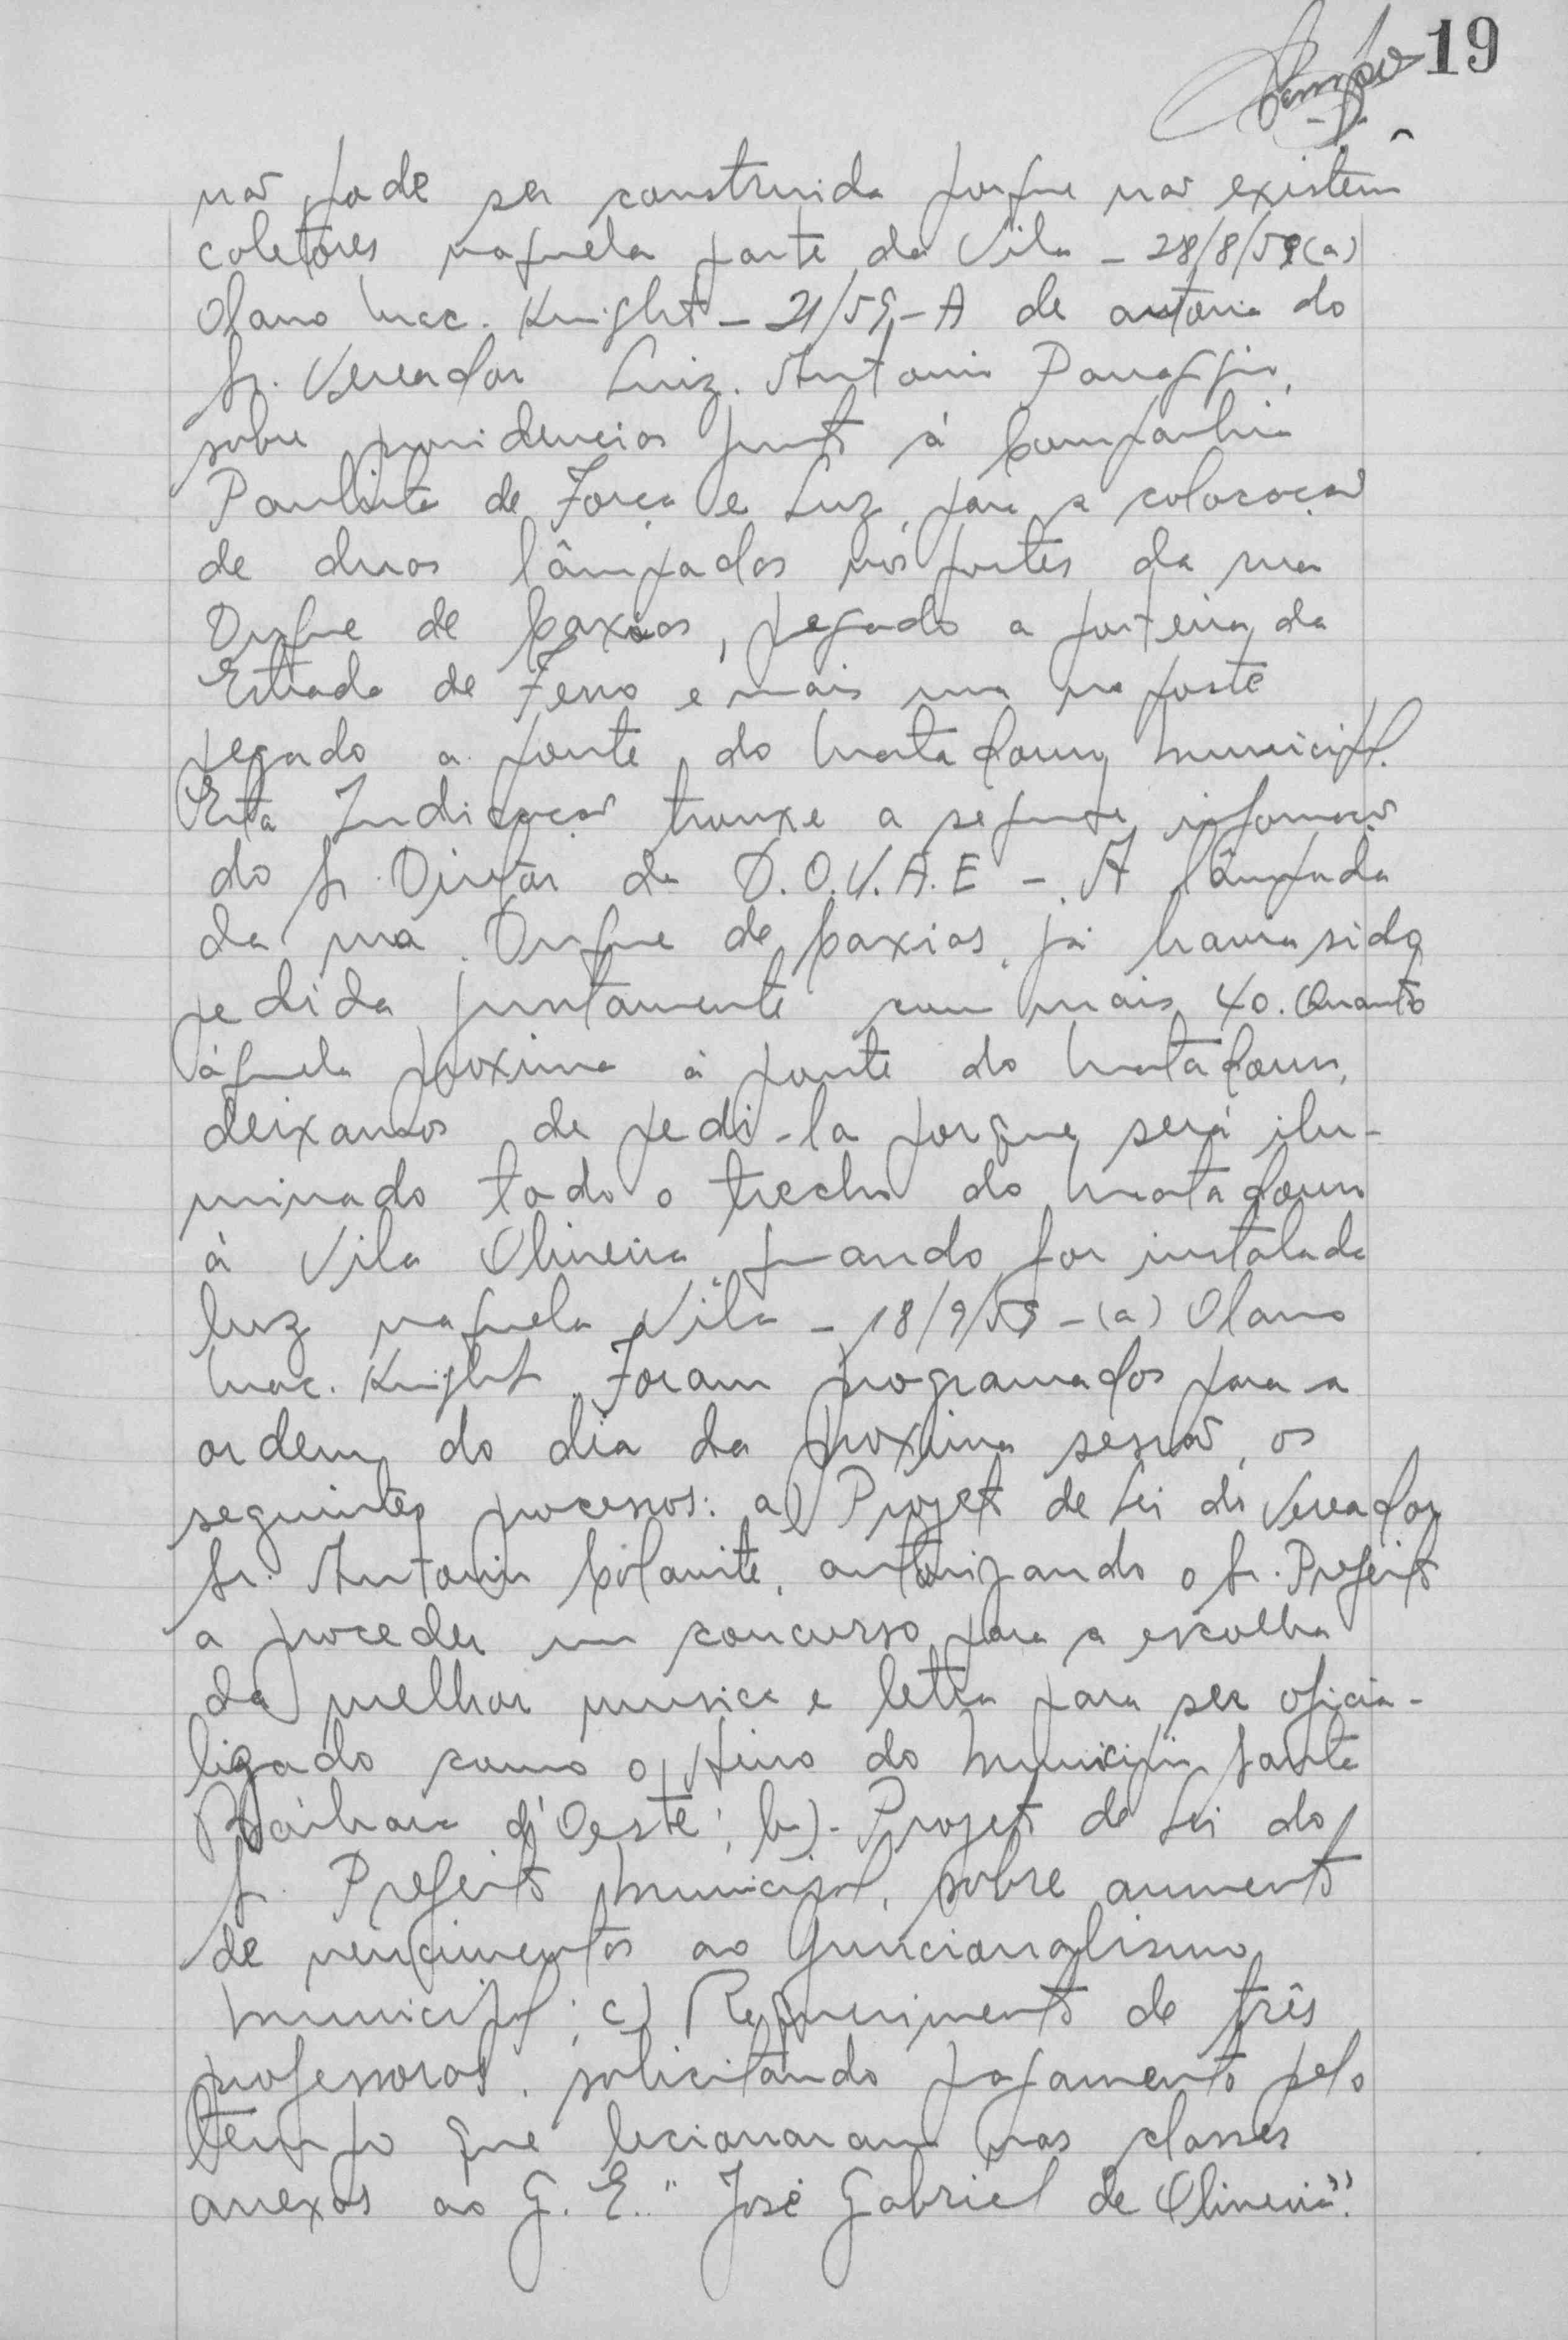 19
não pode ser construida porque não existem
coletores naquela parte da Vila - 28/8/59 (a)
Olavo Mac. Knight - 21/59 - A de autoria do
Sr. Vereador Luiz Antonio Panaggio,
sobre providencias junto à Companhia
Paulista de Força e Luz, para a colocação
de duas lâmpadas nos postes da rua
Duque de Caxias, pegado a porteira da
Estrada de Ferro e mais um no poste
pegado a ponte do Matadouro Municipal.
Esta Indicação trouxe a seguinte informação
do Sr. Diretor da D.O.V.A.E - A lâmpada
da rua Duque de Caxias já havia sido
pedida juntamente com mais 40. Quanto
àquela proxima à ponte do Matadouro,
deixamos de pedi-la porque será ilu-
minado todo o trecho do Matadouro
à Vila Oliveira quando for instalada
luz naquela Vila - 18/9/59 - (a) Olavo
Mac. Knight. Foram programados para a
ordem do dia da proxima sessão, os
seguintes processos: a) Projeto de Lei do Vereador
Sr. Antonio autorizando o Sr. Prefeito
a proceder um concurso para a escolha
da melhor musica e letra para ser oficia-
lizado como o Hino do Municipio Santa
Bárbara d'Oeste; b).- Projeto de Lei do
Sr. Prefeito Municipal, sobre aumento
de vencimentos ao funcionalismo
Municipal; c) Requerimento de três
professoras, solicitando pagamento pelo
tempo que lecionaram nas classes
anexas ao G. E. "José Gabriel de Oliveira".